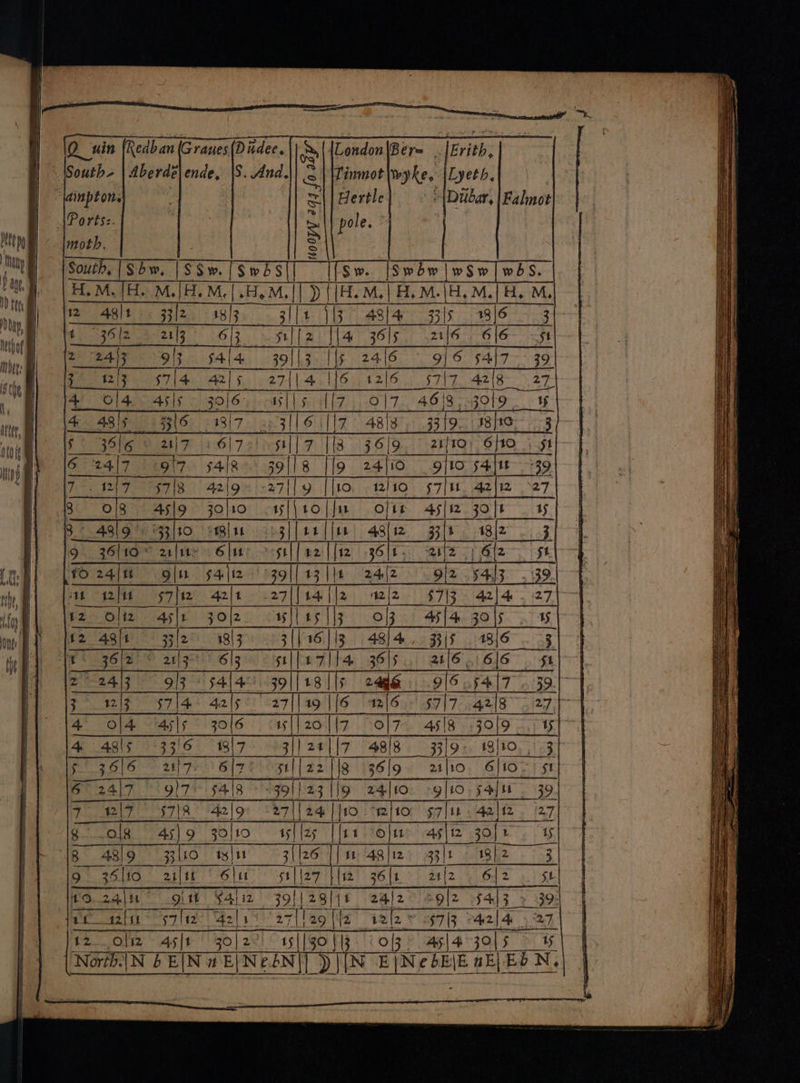 Q uin |Redban|Graues|Düdee. | Age of the Moon | London|Ber= |Erith,
South- | Aberdē|ende, |S. And. | Tinmot|wyke, |Lyeth.
ampton. | Hertle | Dübar, |Falmot
Ports-. | pole.
moth.
South, | Sbw. | SSw. | SwbS || || Sw. |Swbw | wSw | wbS.
H. M. |H. M.|H. M. | H. M. || ☽ ||H. M. | H. M. |H. M. | H. M.
12 48|1 33|2 18|3 3||1 ||3 48|4 33|5 18|6 3
1 36|2 21|3 6|3 51||2 ||4 36|5 21|6 6|6 51
2 24|3 9|3 54|4 39||3 ||5 24|6 9|6 54|7 39
3 12|3 57|4 42|5 27||4 ||6 12|6 57|7 42|8 27
4 0|4 45|5 30|6 15||5 ||7 0|7 46|8 30|9 15
4 48|5 33|6 18|7 3||6 ||7 48|8 33|9 18|10 3
5 36|6 21|7 6|7 51||7 ||8 36|9 21|10 6|10 51
6 24|7 9|7 54|8 39||8 ||9 24|10 9|10 54|11 39
7 12|7 57|8 42|9 27||9 ||10 12|10 57|11 42|12 27
8 0|8 45|9 30|10 15||10||11 0|11 45|12 30|1 15
8 48|9 33|10 18|11 3||11||11 48|12 33|1 18|2 3
9 36|10 21|11 6|11 51||12||12 36|1 21|2 6|2 51
10 24|11 9|11 54|12 39||13||1 24|2 9|2 54|3 39
11 12|11 57|12 42|1 27||14||2 12|2 57|3 42|4 27
12 0|12 45|1 30|2 15||15||3 0|3 45|4 30|5 15
12 48|1 33|2 18|3 3||16||3 48|4 33|5 18|6 3
1 36|2 21|3 6|3 51||17||4 36|5 21|6 6|6 51
2 24|3 9|3 54|4 39||18||5 24|6 9|6 54|7 39
3 12|3 57|4 42|5 27||19||6 12|6 57|7 42|8 27
4 0|4 45|5 30|6 15||20||7 0|7 45|8 30|9 15
4 48|5 33|6 18|7 3||21||7 48|8 33|9 18|10 3
5 36|6 21|7 6|7 51||22||8 36|9 21|10 6|10 51
6 24|7 9|7 54|8 39||23||9 24|10 9|10 54|11 39
7 12|7 57|8 42|9 27||24||10 12|10 57|11 42|12 27
8 0|8 45|9 30|10 15||25||11 0|11 45|12 30|1 15
8 48|9 33|10 18|11 3||26||11 48|12 33|1 18|2 3
9 36|10 21|11 6|11 51||27||12 36|1 21|2 6|2 51
10 24|11 9|11 54|12 39||28||1 24|2 9|2 54|3 39
11 12|11 57|12 42|1 27||29||2 12|2 57|3 42|4 27
12 0|12 45|1 30|2 15||30||3 0|3 45|4 30|5 15
North.|N b E|N n E|NebN|| ☽ ||N E|NebE|E nE|Eb N.